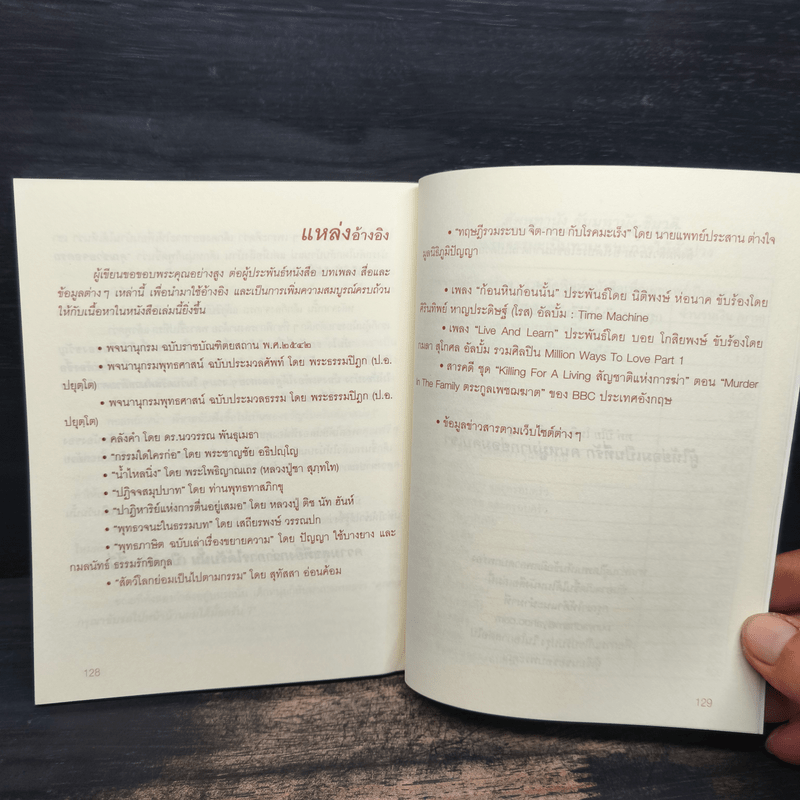 แหล่งอ้างอิง
ผู้เขียนขอขอบพระคุณอย่างสูง ต่อผู้ประพันธ์หนังสือ บทเพลง สื่อและ
ข้อมูลต่างๆ เหล่านี้ เพื่อนำมาใช้อ้างอิง และเป็นการเพิ่มความสมบูรณ์ครบถ้วน
ให้กับเนื้อหาในหนังสือเล่มนี้ยิ่งขึ้น
• พจนานุกรม ฉบับราชบัณฑิตยสถาน พ.ศ.๒๕๔๒
• พจนานุกรมพุทธศาสน์ ฉบับประมวลศัพท์ โดย พระธรรมปิฎก (ป.อ.
ปยุตฺโต)
• พจนานุกรมพุทธศาสน์ ฉบับประมวลธรรม โดย พระธรรมปิฎก (ป.อ.
ปยุตฺโต)
• คลังคำ โดย ดร.นววรรณ พันธุเมธา
• "กรรมใดใครก่อ" โดย พระชาญชัย อธิปญฺโญ
• "น้ำไหลนิ่ง" โดย พระโพธิญาณเถร (หลวงปู่ชา สุภทฺโท)
• "ปฏิจจสมุปบาท" โดย ท่านพุทธทาสภิกขุ
• "ปาฏิหาริย์แห่งการตื่นอยู่เสมอ" โดย หลวงปู่ ติช นัท ฮันห์
• "พุทธวจนะในธรรมบท" โดย เสถียรพงษ์ วรรณปก
• "พุทธภาษิต ฉบับเล่าเรื่องขยายความ" โดย ปัญญา ใช้บางยาง และ
กมลนัทธ์ ธรรมรักขิตกุล
• "สัตว์โลกย่อมเป็นไปตามกรรม" โดย สุทัสสา อ่อนค้อม
128
• "ทฤษฎีรวมระบบ จิต-กาย กับโรคมะเร็ง" โดย นายแพทย์ประสาน ต่างใจ
มูลนิธิภูมิปัญญา
• เพลง "ก้อนหินก้อนนั้น" ประพันธ์โดย นิติพงษ์ ห่อนาค ขับร้องโดย
ศิรินทิพย์ หาญประดิษฐ์ (โรส) อัลบั้ม : Time Machine
• เพลง "Live And Learn" ประพันธ์โดย บอย โกสิยพงษ์ ขับร้องโดย
กมลา สุโกศล อัลบั้ม รวมศิลปิน Million Ways To Love Part 1
• สารคดี ชุด "Killing For A Living สัญชาติแห่งการฆ่า" ตอน "Murder
In The Family ตระกูลเพชฌฆาต" ของ BBC ประเทศอังกฤษ
• ข้อมูลข่าวสารตามเว็บไซต์ต่างๆ
129